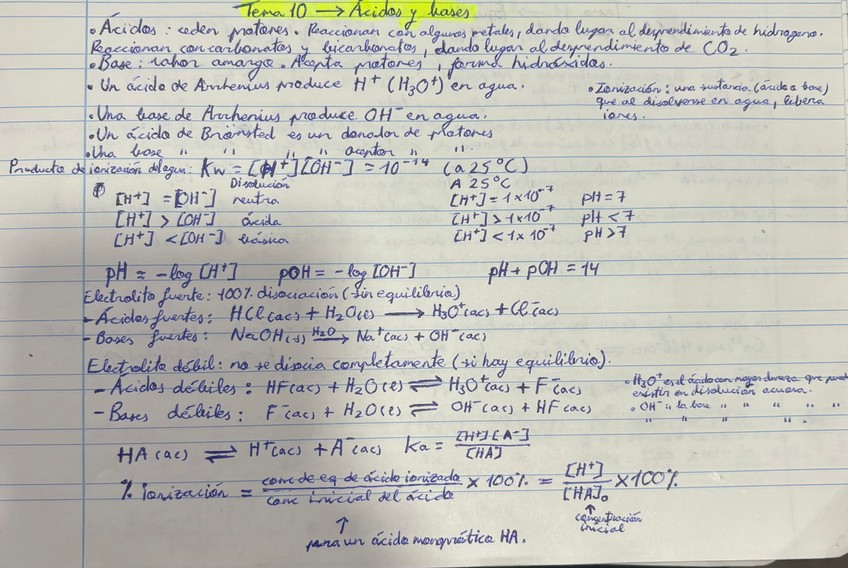 Tema 10 → Ácidos y bases
• Ácidos: ceden protones. Reaccionan con algunos metales, dando lugar al desprendimiento de hidrógeno.
Reaccionan con carbonatos y bicarbonatos, dando lugar al desprendimiento de CO₂.
• Base: sabor amargo. Acepta protones, forma hidróxidos.
• Un ácido de Arrhenius produce H⁺ (H₃O⁺) en agua.
• Ionización: una sustancia (ácido a base)
que al disolverse en agua, libera
iones.
• Una base de Arrhenius produce OH⁻ en agua.
• Un ácido de Brønsted es un donador de protones
• Una base " " " " aceptor " ".
Producto de ionización del agua: Kw = [H⁺][OH⁻] = 10⁻¹⁴ (a 25°C)
Disolución A 25°C
[H⁺] = [OH⁻] neutra [H⁺] = 1x10⁻⁷ pH = 7
[H⁺] > [OH⁻] ácida [H⁺] > 1x10⁻⁷ pH < 7
[H⁺] < [OH⁻] básica [H⁺] < 1x10⁻⁷ pH > 7
pH = -log [H⁺] pOH = -log [OH⁻] pH + pOH = 14
Electrolito fuerte: 100% disociación (sin equilibrio)
- Ácidos fuertes: HCl(ac) + H₂O(l) → H₃O⁺(ac) + Cl⁻(ac)
- Bases fuertes: NaOH(s) H₂O→ Na⁺(ac) + OH⁻(ac)
Electrolito débil: no se disocia completamente (si hay equilibrio).
- Ácidos débiles: HF(ac) + H₂O(l) ⇌ H₃O⁺(ac) + F⁻(ac)
- Bases débiles: F⁻(ac) + H₂O(l) ⇌ OH⁻(ac) + HF(ac)
• H₃O⁺ es el ácido con mayor dureza que puede
existir en disolución acuosa.
• OH⁻ es la base " " " " "
" " " ".
HA(ac) ⇌ H⁺(ac) + A⁻(ac) Ka = [H⁺][A⁻] / [HA]
% Ionización = conc de eq de ácido ionizado / conc inicial del ácido x 100% = [H⁺] / [HA]₀ x 100%
↑ concentración
inicial
↑
para un ácido monoprótico HA.